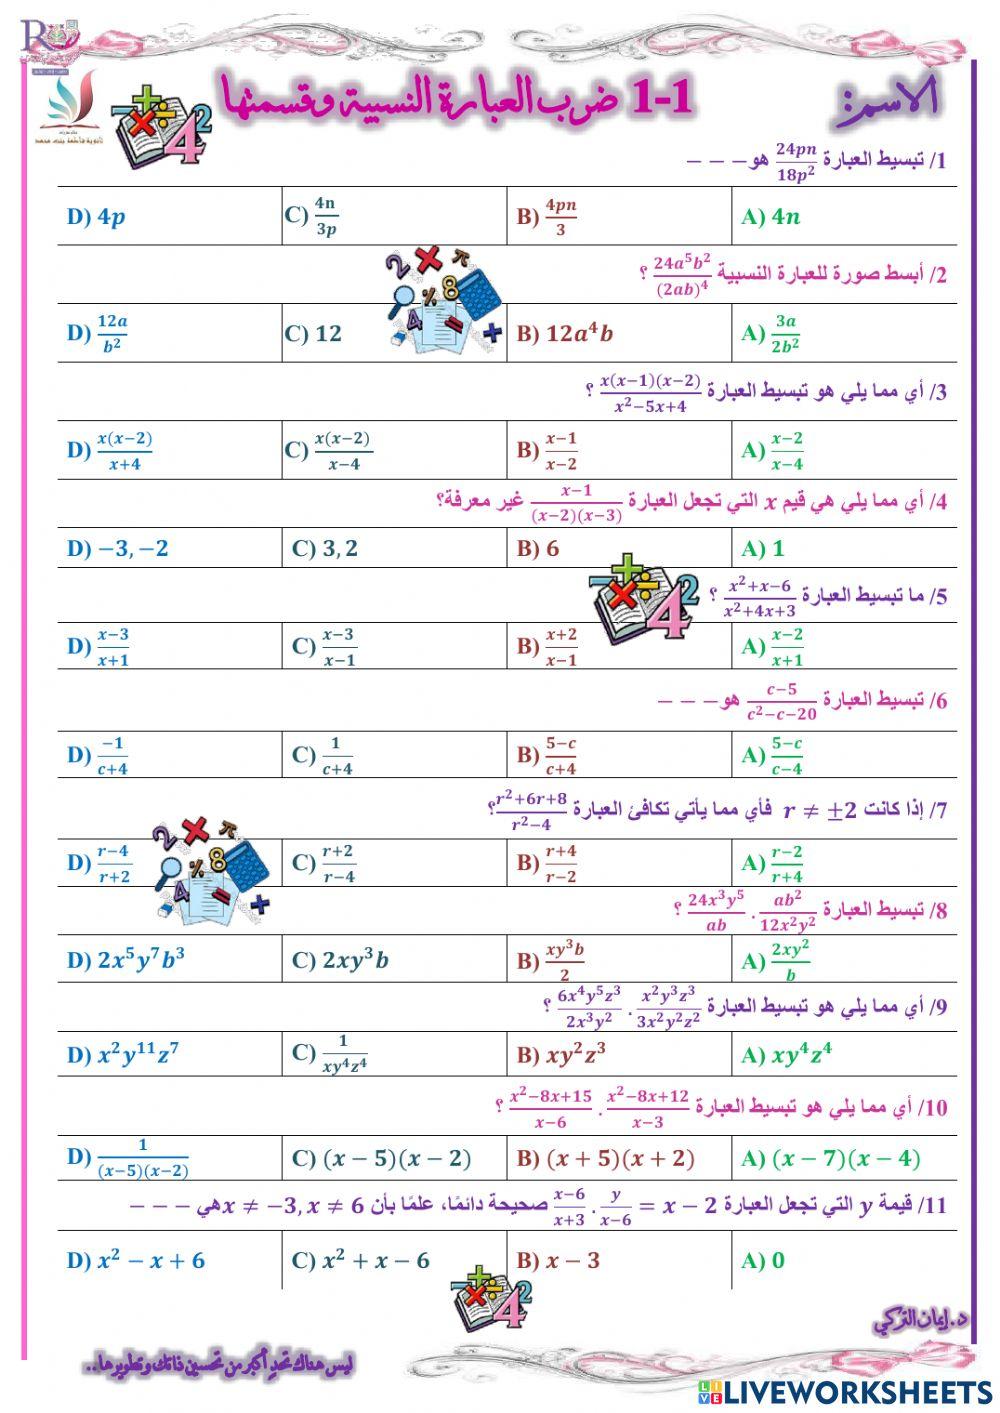 الاسم:
1-1 ضرب العبارة النسبية وقسمتها
ثانوية فاطمة بنت محمد
1/ تبسيط العبارة 24pn/18p² هو---
A) 4n B) 4pn/3 C) 4n/3p D) 4p
2/ أبسط صورة للعبارة النسبية 24a⁵b²/(2ab)⁴ ؟
A) 3a/2b² B) 12a⁴b C) 12 D) 12a/b²
3/ أي مما يلي هو تبسيط العبارة x(x−1)(x−2)/x²−5x+4 ؟
A) x−2/x−4 B) x−1/x−2 C) x(x−2)/x−4 D) x(x−2)/x+4
4/ أي مما يلي هي قيم x التي تجعل العبارة x−1/(x−2)(x−3) غير معرفة؟
A) 1 B) 6 C) 3, 2 D) −3, −2
5/ ما تبسيط العبارة x²+x−6/x²+4x+3 ؟
A) x−2/x+1 B) x+2/x−1 C) x−3/x−1 D) x−3/x+1
6/ تبسيط العبارة c−5/c²−c−20 هو---
A) 5−c/c−4 B) 5−c/c+4 C) 1/c+4 D) −1/c+4
7/ إذا كانت r ≠ ±2 فأي مما يأتي تكافئ العبارة r²+6r+8/r²−4؟
A) r−2/r+4 B) r+4/r−2 C) r+2/r−4 D) r−4/r+2
8/ تبسيط العبارة 24x³y⁵/ab . ab²/12x²y² ؟
A) 2xy²/b B) xy³b/2 C) 2xy³b D) 2x⁵y⁷b³
9/ أي مما يلي هو تبسيط العبارة 6x⁴y⁵z³/2x³y² . x²y³z³/3x²y²z² ؟
A) xy⁴z⁴ B) xy²z³ C) 1/xy⁴z⁴ D) x²y¹¹z⁷
10/ أي مما يلي هو تبسيط العبارة x²−8x+15/x−6 . x²−8x+12/x−3 ؟
A) (x − 7)(x − 4) B) (x + 5)(x + 2) C) (x − 5)(x − 2) D) 1/(x−5)(x−2)
11/ قيمة y التي تجعل العبارة x−6/x+3 . y/x−6 = x − 2 صحيحة دائمًا، علمًا بأن x ≠ −3, x ≠ 6 هي---
A) 0 B) x − 3 C) x² + x − 6 D) x² − x + 6
د. إيمان التركي
ليس هناك تحدٍ أكبر من تحسين ذاتك وتطويرها..
LIVEWORKSHEETS